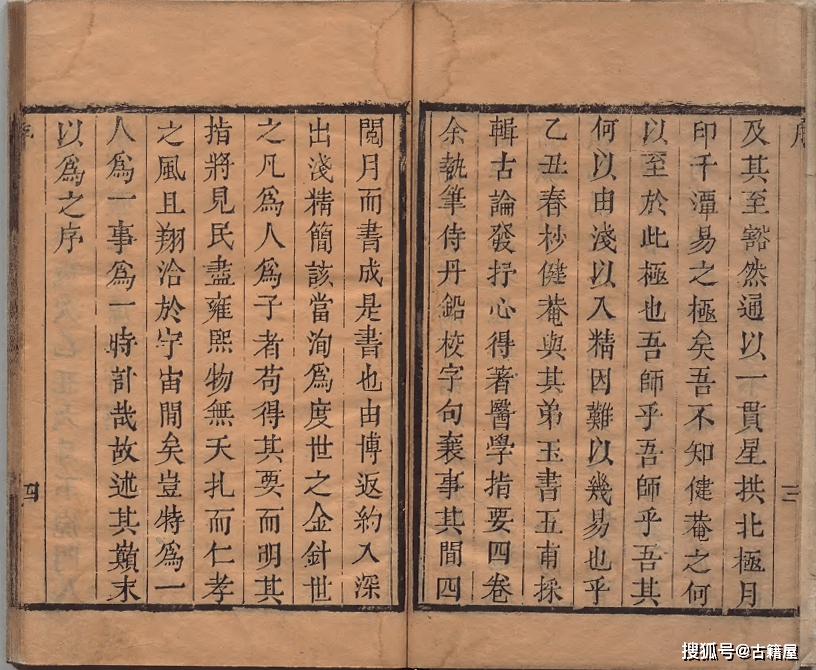 序
三
及其至豁然通以一貫星拱北極月
印千潭易之極矣吾不知健菴之何
以至於此極也吾師乎吾師乎吾其
何以由淺以入精因難以幾易也乎
乙丑春杪健菴與其弟玉書五甫採
輯古論發抒心得著醫學指要四卷
余執筆侍丹鉛校字句襄事其間四
閲月而書成是書也由博返約入深
出淺精簡該當洵爲度世之金針世
之凡爲人爲子者苟得其要而明其
指將見民盡雍熙物無夭扎而仁孝
之風且翔洽於宇宙間矣豈特爲一
人爲一事爲一時計哉故述其巔末
以爲之序
序
四
搜狐号@古籍屋